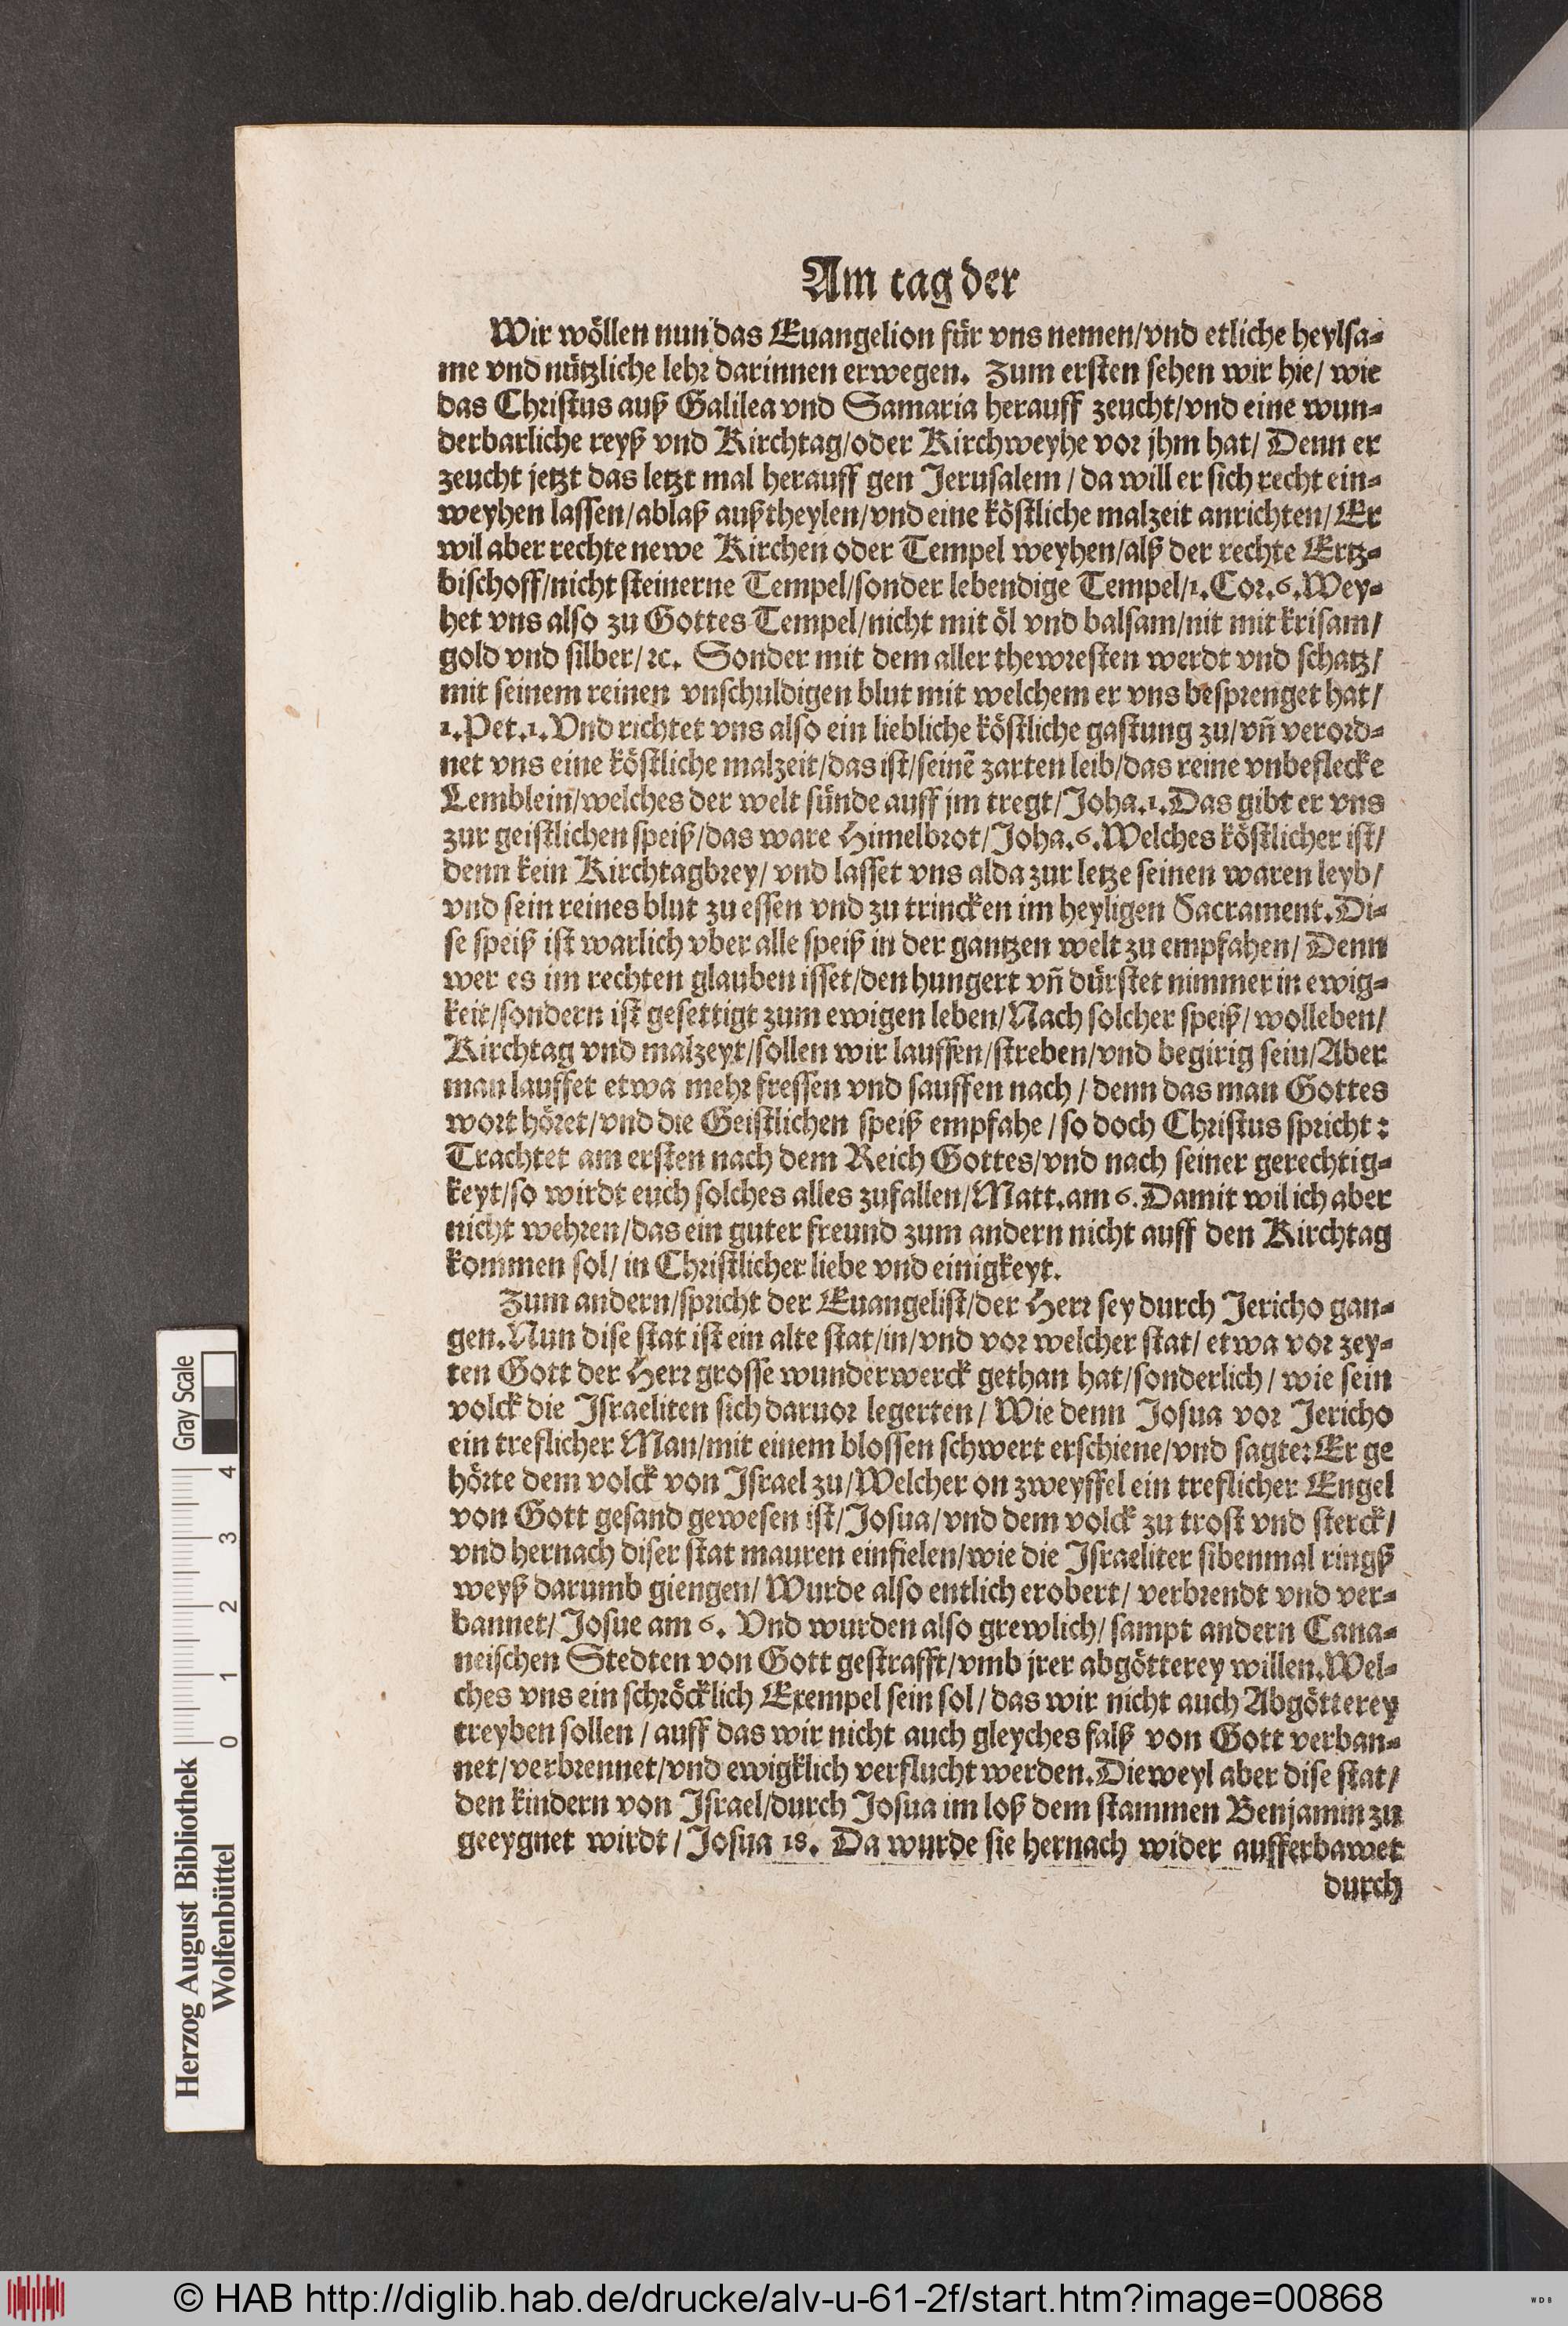 Am tag der
Wir wöllen nun das Euangelion für vns nemen/vnd etliche heylsa-
me vnd nützliche lehr darinnen erwegen. Zum ersten sehen wir hie/ wie
das Christus auß Galilea vnd Samaria herauff zeucht/vnd eine wun-
derbarliche reyß vnd Kirchtag/oder Kirchweyhe vor jhm hat/ Denn er
zeucht jetzt das letzt mal herauff gen Jerusalem / da will er sich recht ein-
weyhen lassen/ablaß außtheylen/vnd eine köstliche malzeit anrichten/Er
wil aber rechte newe Kirchen oder Tempel weyhen/alß der rechte Ertz-
bischoff/nicht steinerne Tempel/sonder lebendige Tempel/1.Cor.6.Wey-
het vns also zu Gottes Tempel/nicht mit öl vnd balsam/nit mit krisam/
gold vnd silber/ꝛc. Sonder mit dem aller thewresten werdt vnd schatz/
mit seinem reinen vnschuldigen blut mit welchem er vns besprenget hat/
1.Pet.1.Vnd richtet vns also ein liebliche köstliche gastung zu/vñ verord-
net vns eine köstliche malzeit/das ist/seinē zarten leib/das reine vnbeflecke
Lemblein/welches der welt sünde auff jm tregt/Joha.1.Das gibt er vns
zur geistlichen speiß/das ware Himelbrot/Joha.6.Welches köstlicher ist/
denn kein Kirchtagbrey/ vnd lasset vns alda zur letze seinen waren leyb/
vnd sein reines blut zu essen vnd zu trincken im heyligen Sacrament.Di-
se speiß ist warlich vber alle speiß in der gantzen welt zu empfahen/ Denn
wer es im rechten glauben isset/den hungert vñ dürstet nimmer in ewig-
keit/sondern ist gesettigt zum ewigen leben/Nach solcher speiß/ wolleben/
Kirchtag vnd malzeyt/sollen wir lauffen/streben/vnd begirig sein/Aber
man lauffet etwa mehr fressen vnd sauffen nach / denn das man Gottes
wort höret/vnd die Geistlichen speiß empfahe / so doch Christus spricht:
Trachtet am ersten nach dem Reich Gottes/vnd nach seiner gerechtig-
keyt/so wirdt euch solches alles zufallen/Matt.am 6.Damit wil ich aber
nicht wehren/das ein guter freund zum andern nicht auff den Kirchtag
kommen sol/ in Christlicher liebe vnd einigkeyt.
Zum andern/spricht der Euangelist/der Herr sey durch Jericho gan-
gen.Nun dise stat ist ein alte stat/in/vnd vor welcher stat/ etwa vor zey-
ten Gott der Herr grosse wunderwerck gethan hat/sonderlich / wie sein
volck die Israeliten sich daruor legerten / Wie denn Josua vor Jericho
ein treflicher Man/mit einem blossen schwert erschiene/vnd sagte:Er ge
hörte dem volck von Israel zu/Welcher on zweyffel ein treflicher Engel
von Gott gesand gewesen ist/Josua/vnd dem volck zu trost vnd sterck/
vnd hernach diser stat mauren einfielen/wie die Israeliter sibenmal ringß
weyß darumb giengen/ Wurde also entlich erobert/ verbrendt vnd ver-
bannet/ Josue am 6. Vnd wurden also grewlich/ sampt andern Cana-
neischen Stedten von Gott gestrafft/vmb jrer abgötterey willen.Wel-
ches vns ein schröcklich Exempel sein sol / das wir nicht auch Abgötterey
treyben sollen / auff das wir nicht auch gleyches falß von Gott verban-
net/verbrennet/vnd ewigklich verflucht werden.Dieweyl aber dise stat/
den kindern von Israel/durch Josua im loß dem stammen Benjamin zu
geeygnet wirdt / Josua 18. Da wurde sie hernach wider aufferbawet
durch
Herzog August Bibliothek
Wolfenbüttel
0 1 2 3 4
Gray Scale
© HAB http://diglib.hab.de/drucke/alv-u-61-2f/start.htm?image=00868
WDB